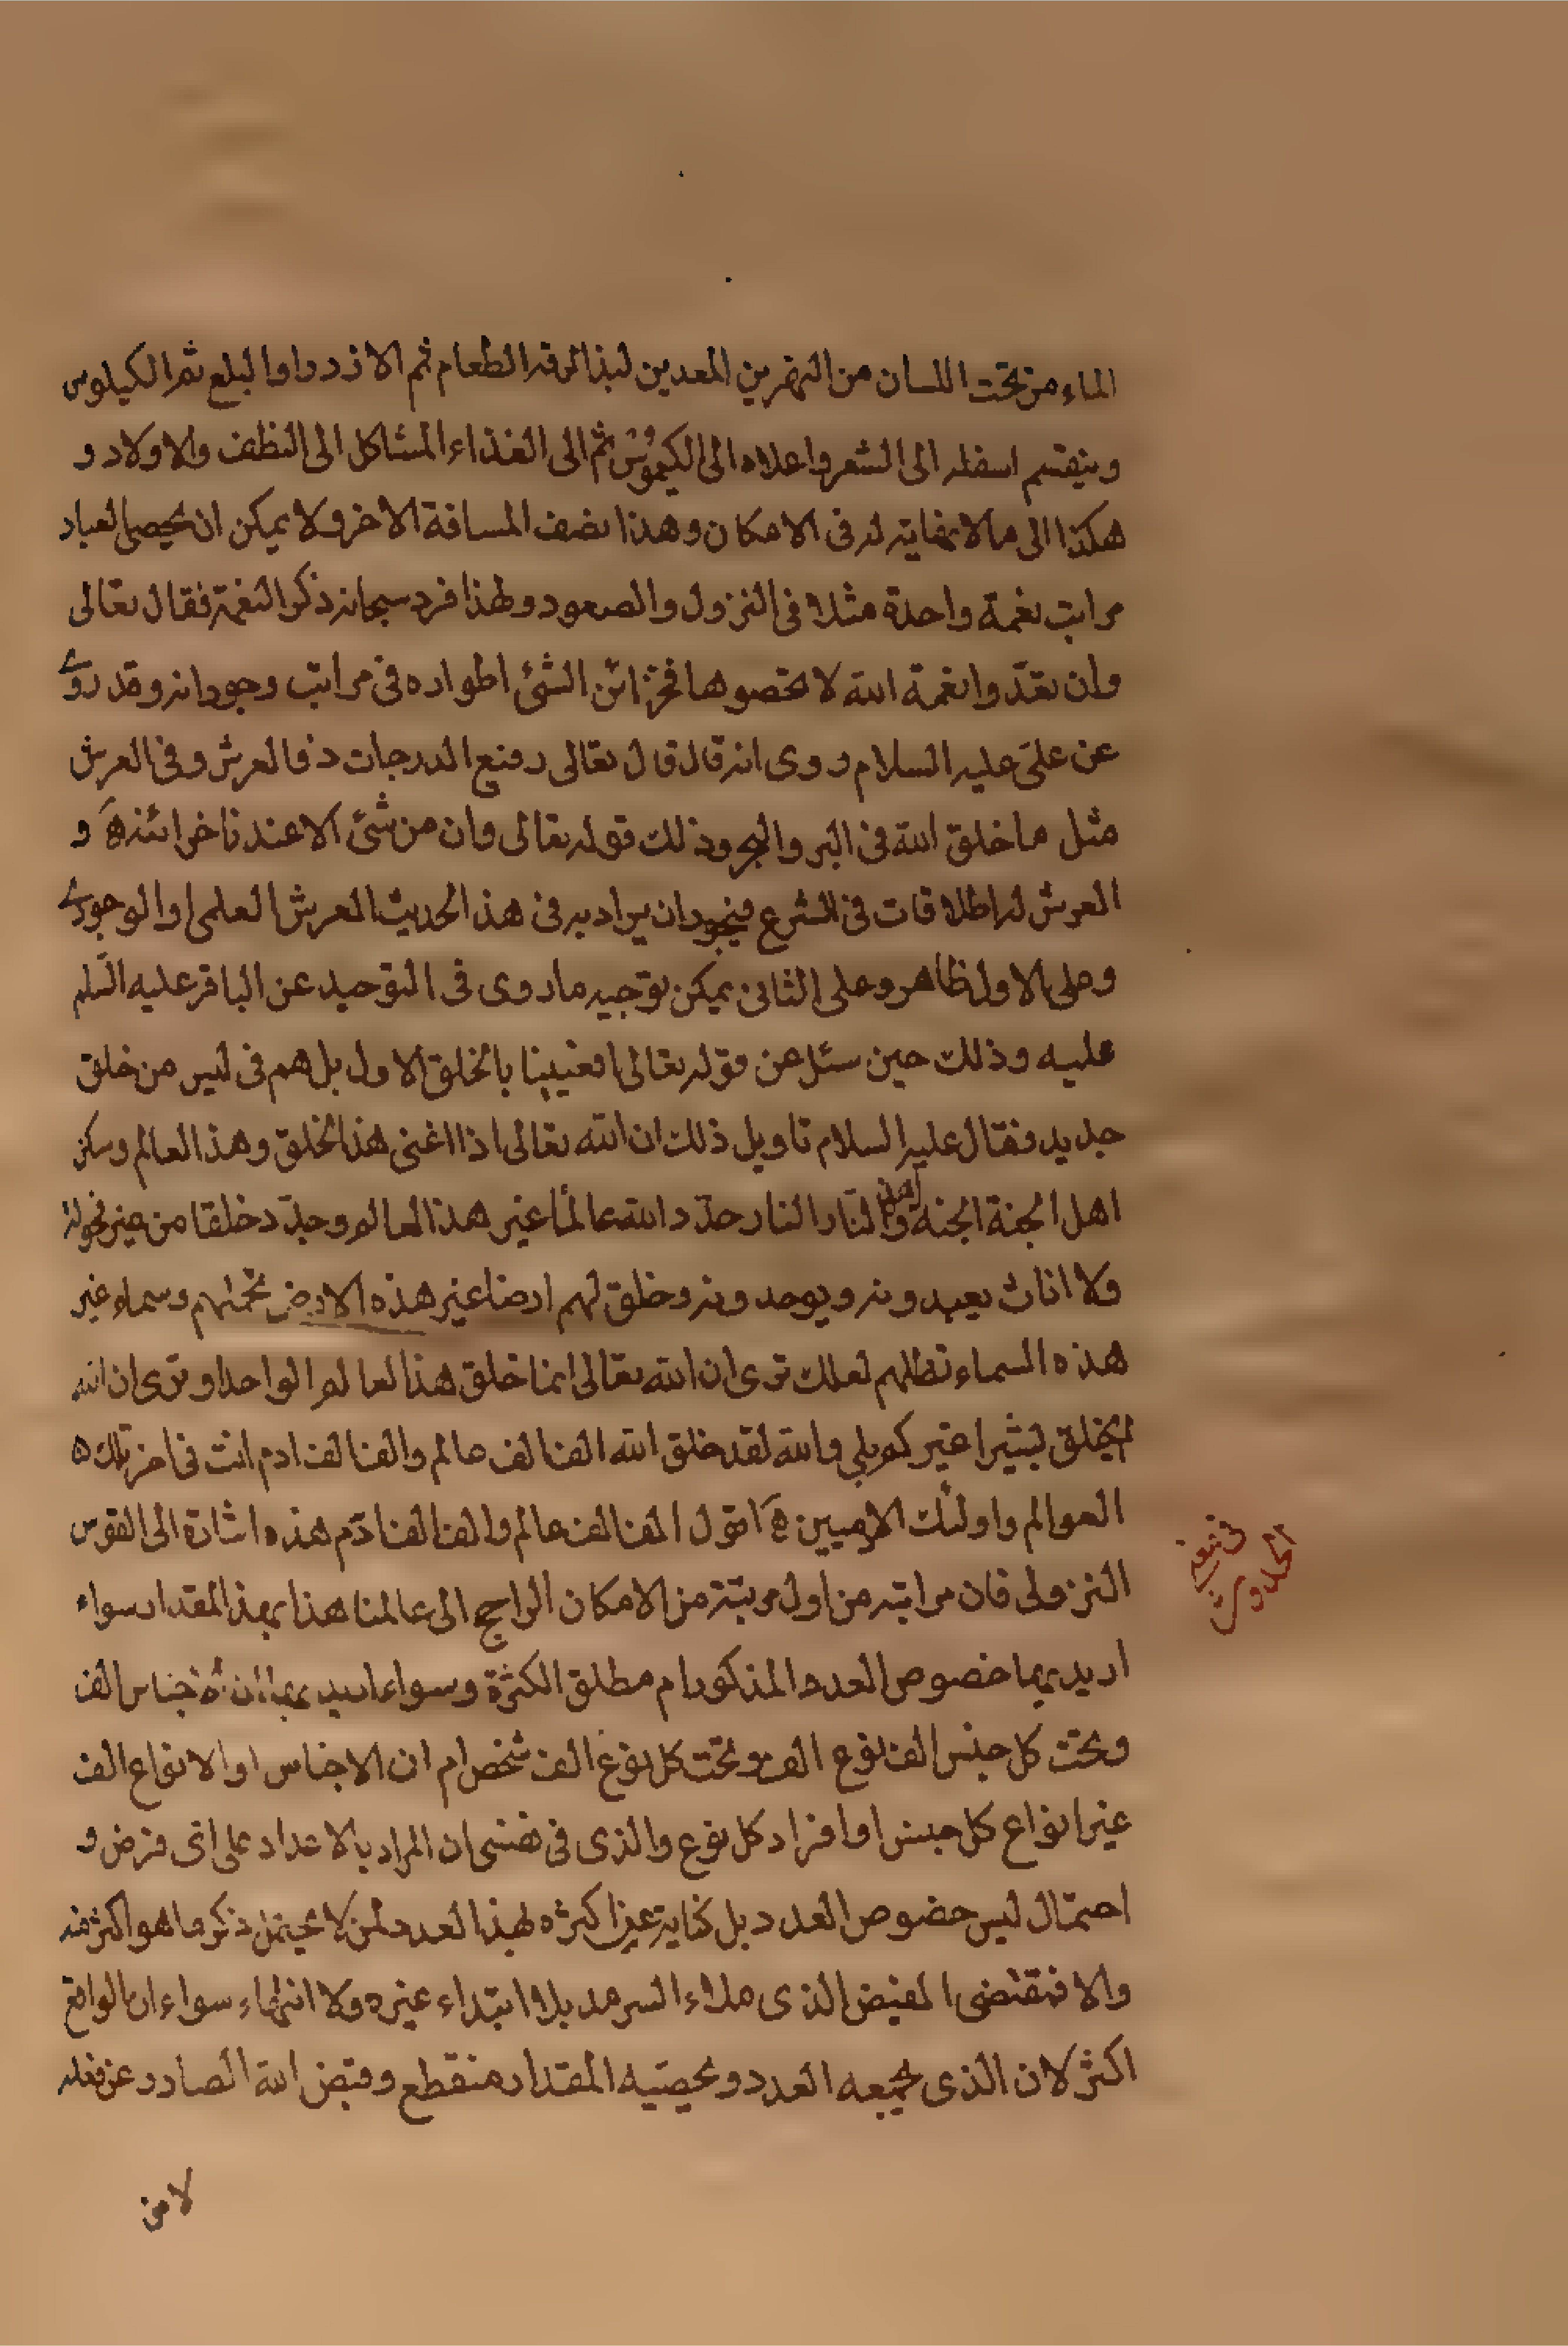 الماء من تحت اللسان من النهرين المعدين لبذالرقه الطعام ثم الازدرا والبلع ثم الكيلوس
وينقسم اسفله الى الشعر واعلاه الى الكيموس ثم الى الغذاء المشاكل الى النطف والاولاد و
هكذا الى مالانهاية له فى الامكان وهذا نصف المسافة الاخر ولا يمكن ان يحصى العباد
مراتب نعمة واحدة مثلا فى النزول والصعود ولهذا فرد سبحانه ذكر النعمة فقال تعالى
وان تعدّوا نعمة الله لا تحصوها فخزائن الشئ اطواره فى مراتب وجوداته وقد روى
عن علىّ عليه السلام روى انه قال قال تعالى رفيع الدرجات ذو العرش وفى العرش
مثل ما خلق الله فى البر والبحر وذلك قوله تعالى وان من شئ الا عندنا خزائنه و
العرش له اطلاقات فى الشرع فيجوز ان يراد به فى هذا الحديث العرش العلمى او الوجودى
وعلى الاول ظاهر وعلى الثانى يمكن توجيه ما روى فى التوحيد عن الباقر عليه السلم
عليه وذلك حين سئل عن قوله تعالى افعيينا بالخلق الاول بل هم فى لبس من خلق
جديد فقال عليه السلام تاويل ذلك ان الله تعالى اذا افنى هذا الخلق وهذا العالم وسكن
اهل الجنة الجنه و اهل النّار النار جدّد الله عالماً غير هذا العالم وجدّد خلقا من غير فحولة
ولا اناث يعبدونه ويوحدونه وخلق لهم ارضا غير هذه الارض تحملهم وسماء غير
هذه السماء تظلهم لعلك ترى ان الله تعالى انما خلق هذا العالم الواحد او ترى ان الله
لم يخلق بشرا غيركم بلى والله لقد خلق الله الف الف عالم والف الف ادم انت فى اخر تلك
العوالم واولئك الادميين اقول الف الف عالم والف الف ادم هذه اشارة الى القوس
النزولى فان مراتبه من اول مرتبة من الامكان الراجح الى عالمنا هذا بهذا المقدار سواء
اريد بهما خصوص العدد المذكور ام مطلق الكثرة وسواء اريد بهما ان الاجناس الف
وتحت كل جنس الف نوع وتحت كل نوع الف شخص ام ان الاجناس او الانواع الف
غير انواع كل جنس او افراد كل نوع والذى فى نفسى ان المراد بالاعداد على اى فرض و
احتمال ليس خصوص العدد بل كناية عن اكثره لهذا العدد لمن لا يحتمل ذكر ما هو اكثر منه
والا فمقتضى الفيض الذى ملاء السرمد بلا ابتداء غيره ولا انتهاء سواء ان الواقع
اكثر لان الذى يجمعه العدد ويحصيه المقدار منقطع وفيض الله الصادر عن فعله
لا من
فى
الحدوث